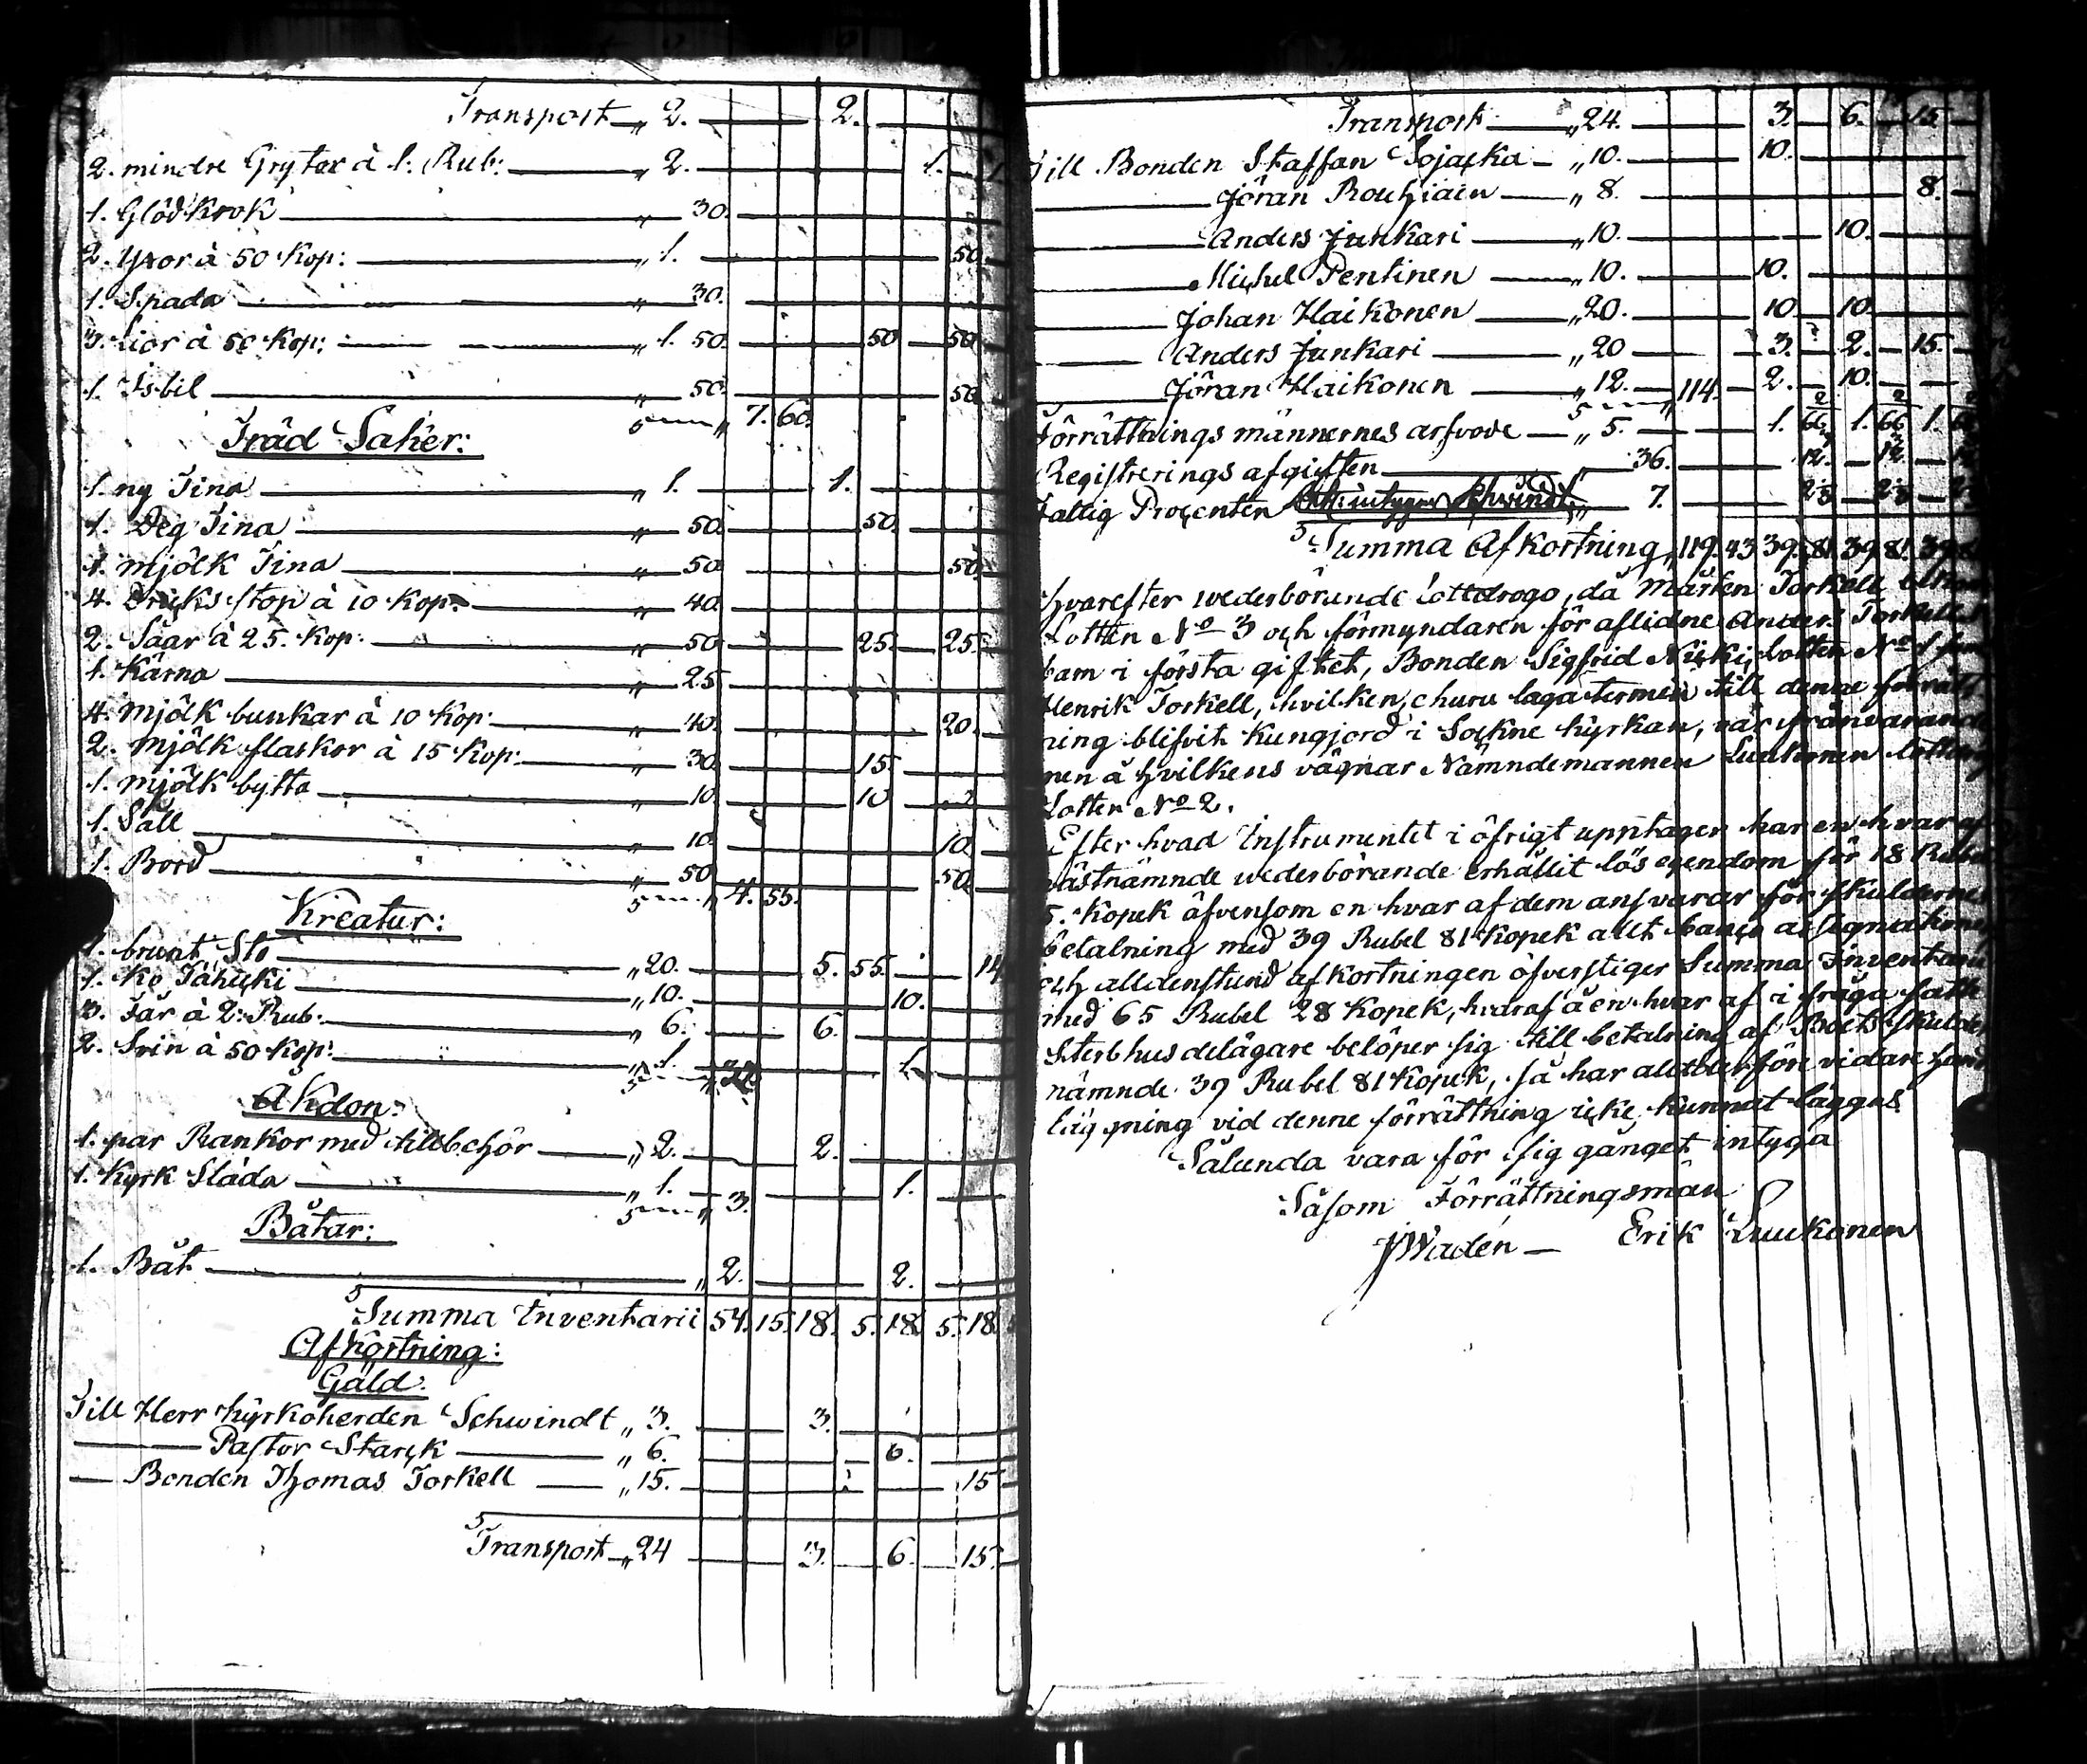 Transport „ 2. 2.
2. mindre Grytor à 1. Rub: „ 2. 1. 1
1. Glöd krok „ 30.
2. Yxor à 50 Kop: „ 1. 50.
1. Spada „ 30.
3. Lior à 50 Kop: „ 1. 50. 50 50
1. Isbil „ 50. 50
S „ 7. 60.
Träd Saker:
1. ny Tina „ 1. 1.
1. Deg Tina „ 50. 50.
1. Mjölk Tina „ 50 50
4. Dricks stop à 10 Kop: „ 40
2. Såar à 25. Kop: „ 50 25. 25.
1. Kärna „ 25
4. Mjölk bunkar à 10 Kop: „ 40. 20.
2. Mjölk flaskor à 15 Kop: „ 30 15.
1. Mjölk bytta „ 10 10
1. Såll „ 10. 10
1. Bord „ 50 50
S „ 4. 55.
Kreatur:
1. brunt Sto „ 20. 5. 55. 14
1. Ko Tähicki „ 10. 10.
3. Får à 2: Rub: „ 6. 6.
2. Svin à 50 Kop: „ 1. 1.
S „ 37
Åkdon:
1. par Rankor med tillbehör „ 2. 2.
1. Kyrk Släda „ 1. 1.
S „ 3.
Båtar:
1. Båt „ 2. 2.
Summa Inventarii 54. 15. 18. 5. 18. 5. 18.
Afkortning:
Gäld.
Till Herr Kyrkoherden Schwindt „ 3. 3.
Pastor Starck „ 6. 6.
Bonden Thomas Torkell „ 15. 15
Transport „ 24 3. 6. 15.
Transport „ 24. 3. 6. 15.
Till Bonden Staffan Sojacka „ 10. 10.
Jöran Rouhiain „ 8. 8.
Anders Junkari „ 10. 10.
Michel Pentinen „ 10. 10.
Johan Haikonen „ 20. 10. 10.
Anders Junkari „ 20 3. 2. 15.
Jöran Haikonen „ 12. 114. 2. 10.
Förrättnings männernes arfvode „ 5. 1. 66 1. 66 1. 66
Registrerings afgiften „ 36. 12. 12. 12
Fattig Procenten „ 7. 2⅓ 2⅓ 2
Summa Afkortning „ 119. 43 39. 81. 39 81. 39 8
Hvarefter wederbörande lottdrogo, då Mårten Torkell
Lotten No 3 och förmyndaren för aflidne Anders Torkells
barn i första giftet, Bonden Sigfrid Nicki, lotten No 1
Henrik Torkell, hvilken, churu laga termin till denne förrätt
ning blifvit kungjord i Sockne kyrkan, var frånvarande
men å hvilkens vägnar Nämndemannen Luukonen
Lotten No 2.
Efter hvad Instrumentet i öfrigt upptager har en hvar af
nästnämnde wederbörande erhållit lös egendom för 18 Rubel
5. Kopek äfvensom en hvar af dem ansvarar för skuldernes
betalning med 39 Rubel 81 Kopek allt banco assignationer
och alldenstund afkortningen öfverstiger Summa Inventarii
med 65 Rubel 28 Kopek, hvaraf å en hvar af i fråga
Sterbhus delägare belöper sig till betalning af Boets skulder
nämnde 39 Rubel 81 Kopek, så har vidare
läggning vid denne förrättning icke kunnat läggas.
Sålunda vara för sig gånget intyga
Såsom Förrättningsmän
JWadén — Erik Luukonen